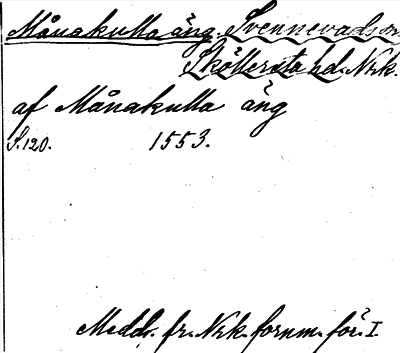 Månakulla äng. Svennevads sn.
Sköllersta hd. Nrk.
af Månakulla äng
S. 120. 1553.
Medd. fr. Nrk. fornm. för. I